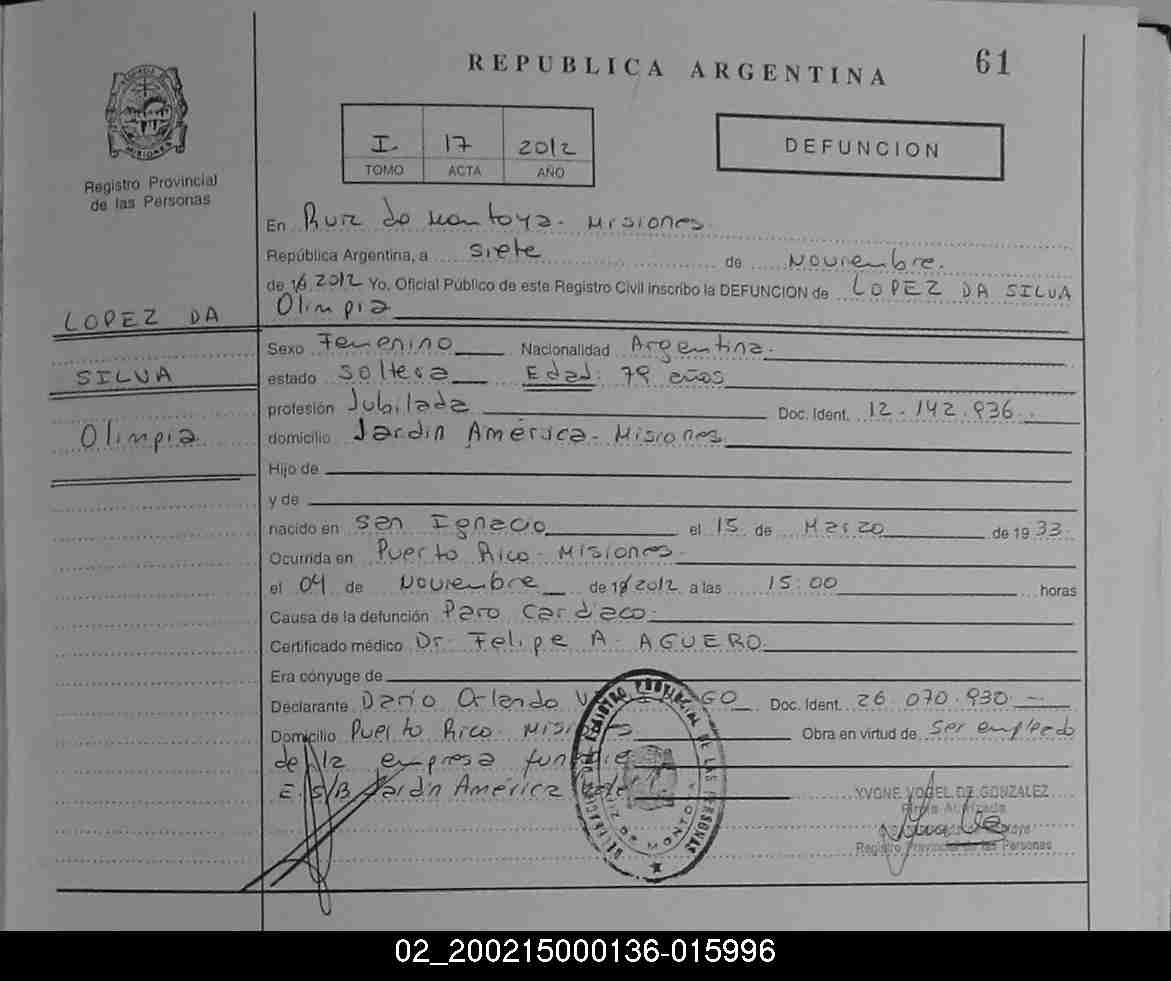 REPUBLICA ARGENTINA
61
PROVINCIA DE
MISIONES
Registro Provincial
de las Personas
I 17 2012
TOMO ACTA AÑO
DEFUNCION
En Ruiz de Montoya - Misiones
República Argentina, a siete de Noviembre.
de 19 2012 Yo, Oficial Público de este Registro Civil inscribo la DEFUNCION de LOPEZ DA SILVA
Olimpia
LOPEZ DA
SILVA
Olimpia
Sexo Femenino Nacionalidad Argentina.
estado soltera Edad: 79 años
profesión Jubilada Doc. Ident. 12.142.936
domicilio Jardin América - Misiones
Hijo de
y de
nacido en San Ignacio el 15 de Marzo de 1933
Ocurrida en Puerto Rico - Misiones
el 04 de Noviembre de 19 2012 a las 15:00 horas
Causa de la defunción Paro Cardíaco
Certificado médico Dr. Felipe A. AGUERO
Era cónyuge de
Declarante Dario Orlando Doc. Ident. 26.070.930
Domicilio Puerto Rico - Misiones Obra en virtud de ser empleado
de la empresa
E. S/B Jardin América
DELEGACION DEL REGISTRO PROVINCIAL DE LAS PERSONAS
RUIZ DE MONTOYA
YVONE VOGEL DE GONZALEZ
Firma Autorizada
Registro Provincial de las Personas
02_200215000136-015996